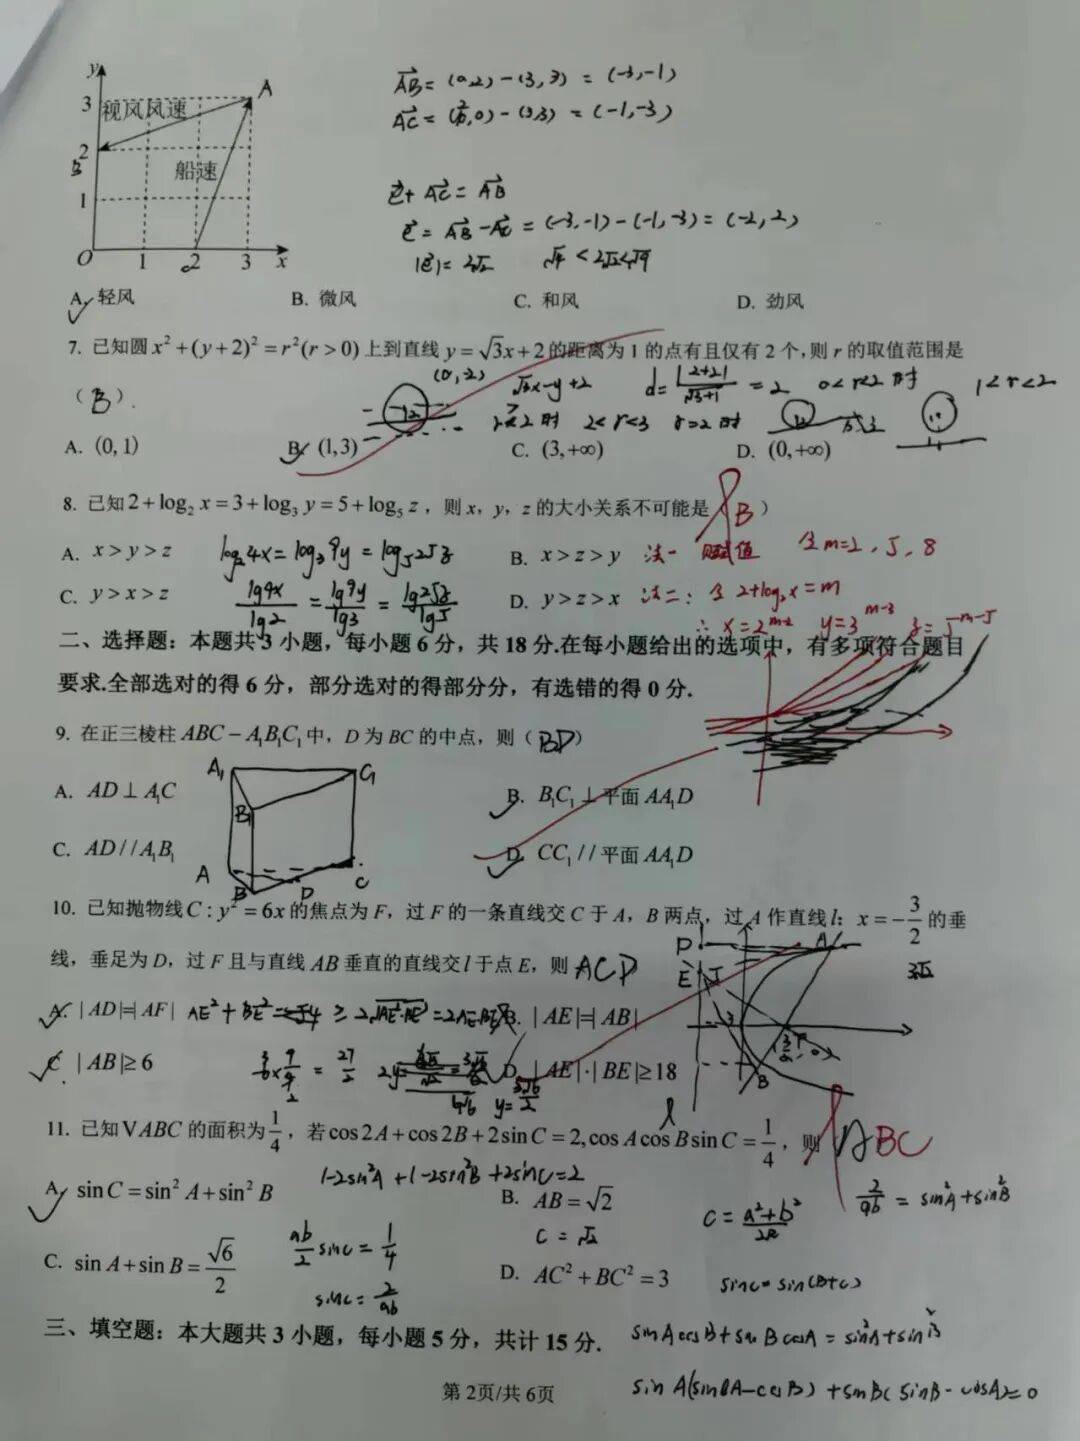 y
3 视风风速 A
2
B
船速
1
O 1 2 3 x
c
AB = (0,2) - (3,3) = (-3,-1)
AC = (2,0) - (3,3) = (-1,-3)
e + AC = AB
e = AB - AC = (-3,-1) - (-1,-3) = (-2,2)
|e| = 2√2 √4 < 2√2 < √9
A. 轻风 B. 微风 C. 和风 D. 劲风
7. 已知圆 x² + (y+2)² = r² (r > 0) 上到直线 y = √3x + 2 的距离为 1 的点有且仅有 2 个，则 r 的取值范围是
(0,2) √3x-y+2 d = |2+2|/√3+1 = 2 0<r<2 时 1<r<2
（ B ）.
2<r<3 r=2 时 成立
A. (0,1) B. (1,3) C. (3,+∞) D. (0,+∞)
8. 已知 2 + log₂ x = 3 + log₃ y = 5 + log₅ z，则 x，y，z 的大小关系不可能是 （ B ）
A. x > y > z log₂4x = log₃9y = log₅25z B. x > z > y 法一 赋值 令 m=2，5，8
C. y > x > z lg4x/lg2 = lg9y/lg3 = lg25z/lg5 D. y > z > x 法二：令 2+log₂x = m
∴ x = 2^(m-2) y = 3^(m-3) z = 5^(m-5)
二、选择题：本题共 3 小题，每小题 6 分，共 18 分.在每小题给出的选项中，有多项符合题目
要求.全部选对的得 6 分，部分选对的得部分分，有选错的得 0 分.
9. 在正三棱柱 ABC − A₁B₁C₁ 中，D 为 BC 的中点，则（ BD ）
A₁ C₁
B₁
A B D C
A. AD ⊥ A₁C B. B₁C₁ ⊥ 平面 AA₁D
C. AD // A₁B₁ D. CC₁ // 平面 AA₁D
10. 已知抛物线 C : y² = 6x 的焦点为 F，过 F 的一条直线交 C 于 A，B 两点，过 A 作直线 l：x = −3/2 的垂
线，垂足为 D，过 F 且与直线 AB 垂直的直线交 l 于点 E，则 ACD
A. | AD |=| AF | B. | AE |=| AB |
C. | AB |≥ 6 D. | AE |·| BE |≥ 18
D A
E
F
B
l
11. 已知 VABC 的面积为 1/4，若 cos 2A + cos 2B + 2 sin C = 2, cos A cos B sin C = 1/4，则 ABC
1-2sin²A + 1-2sin²B + 2sinC = 2
A. sin C = sin² A + sin² B B. AB = √2
c = √2
2/ab = sin²A + sin²B
ab/2 sinC = 1/4
C. sin A + sin B = √6/2 D. AC² + BC² = 3
sinC = sin(B+C)
三、填空题：本大题共 3 小题，每小题 5 分，共计 15 分.
sinAcosB + sinBcosA = sin²A + sin²B
第 2页/共 6页
sinA(sinA-cosB) + sinB(sinB-cosA) = 0